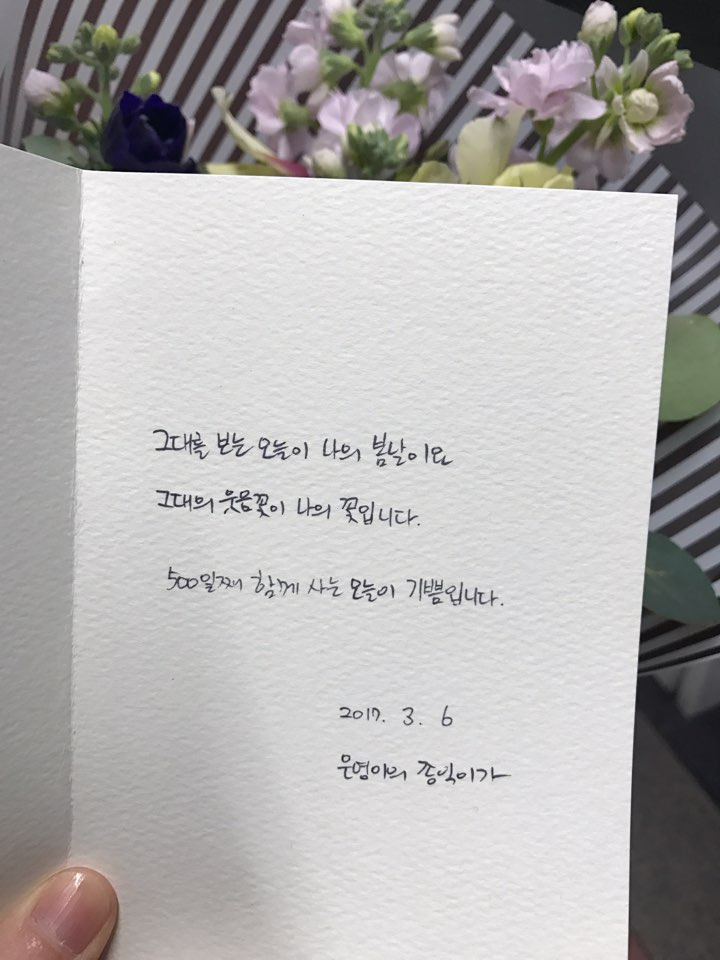 그대를 보는 오늘이 나의 봄날이요
그대의 웃음꽃이 나의 꽃입니다.
500일째 함께 사는 오늘이 기쁨입니다.
2017. 3. 6
은영이의 종익이가